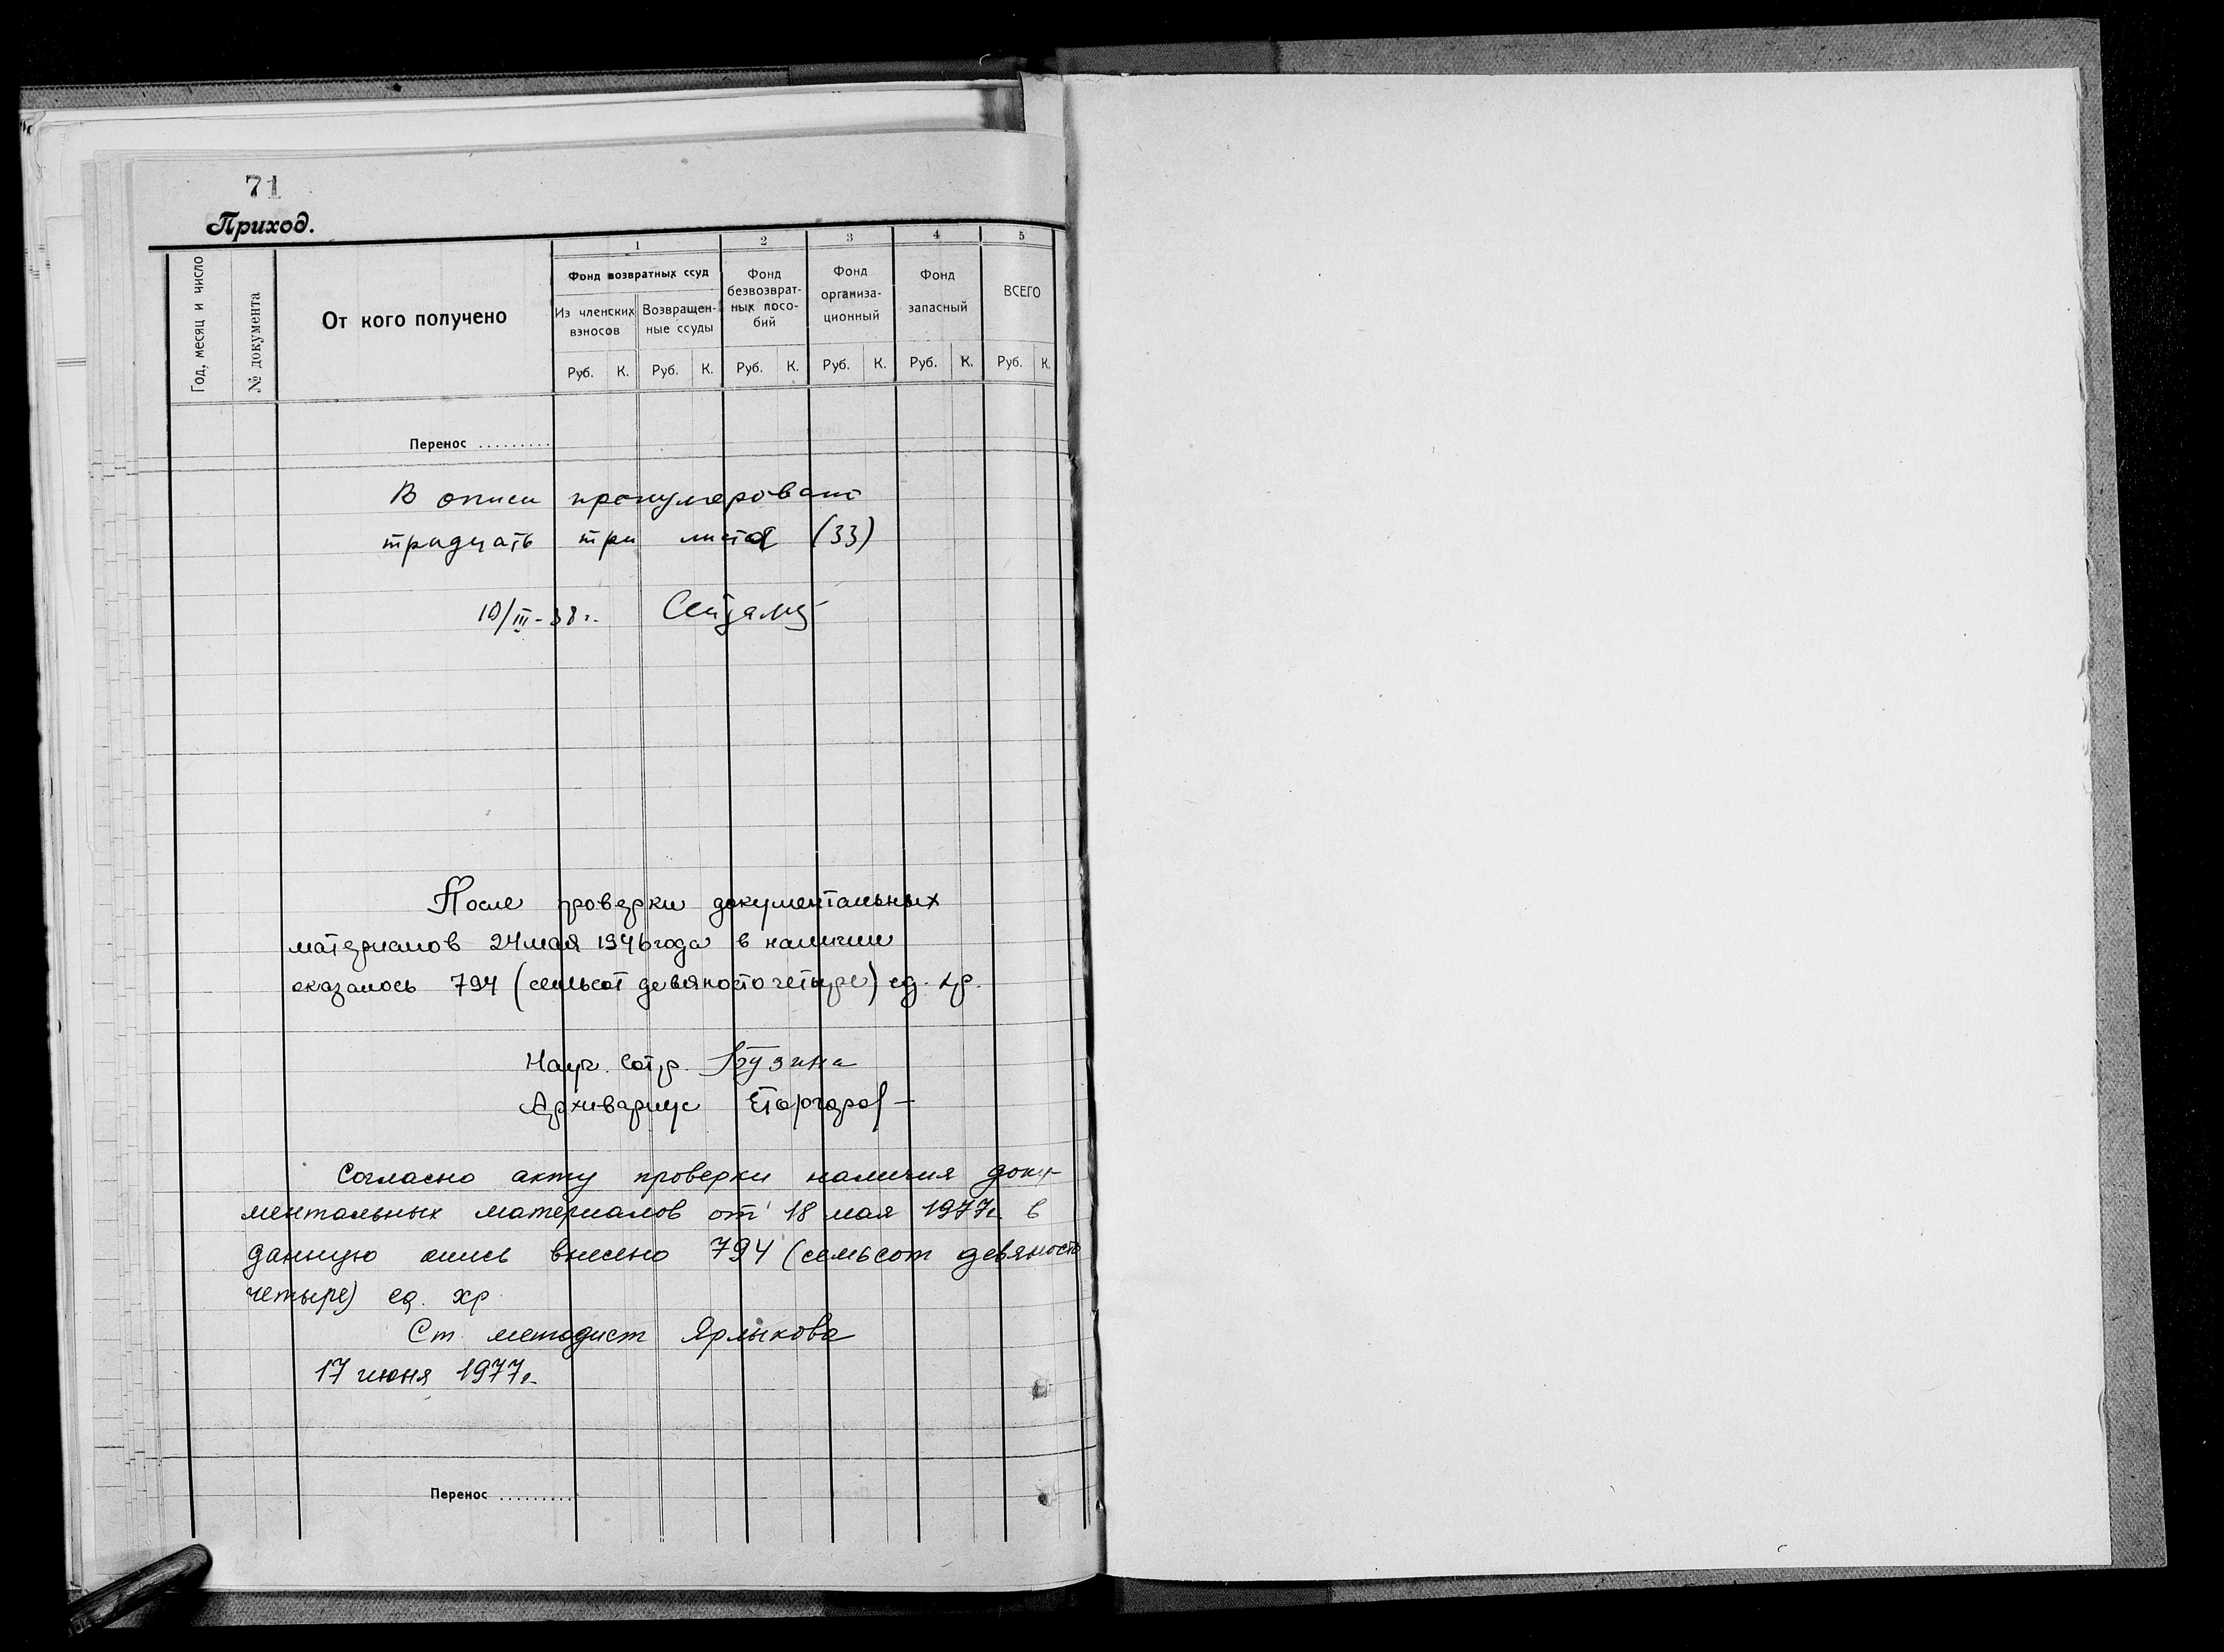 71
Приход.
Год, месяц и число
№ документа
От кого получено
1
2
3
4
5
Фонд возвратных ссуд
Из членских взносов
Возвращен-
ные ссуды
Фонд
безвозврат-
ных посо-
бий
Фонд
организа-
ционный
Фонд
запасный
ВСЕГО
Руб. К. Руб. К. Руб. К. Руб. К. Руб. К. Руб. К.
Перенос .........
В описи пронумеровано
тридцать три листа (33)
10/III-38 г.
После проверки документальных
материалов 24 мая 1946 года в наличии
оказалось 794 (семьсот девяносто четыре) ед. хр.
Науч. сотр. Бузина
Архивариус
Согласно акту проверки наличия доку-
ментальных материалов от 18 мая 1977г. в
данную опись внесено 794 (семьсот девяносто
четыре) ед. хр
Ст. методист Ярлыкова
17 июня 1977г.
Перенос .........